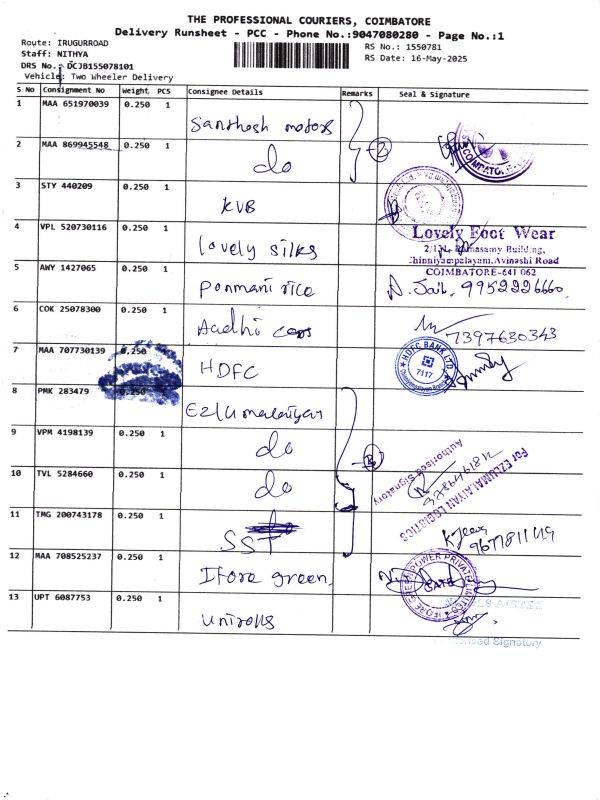 THE PROFESSIONAL COURIERS, COIMBATORE
Delivery Runsheet - PCC - Phone No.:9047080280 - Page No.:1
Route: IRUGURROAD
RS No.: 1550781
Staff: NITHYA
RS Date: 16-May-2025
DRS No.: DCJB155078101
Vehicle: Two Wheeler Delivery
S No Consignment No Weight PCS Consignee Details Remarks Seal & Signature
1 MAA 651970039 0.250 1 Santhosh motors
2 MAA 869945548 0.250 1 do
3 STY 440209 0.250 1 KVB
4 VPL 520730116 0.250 1 lovely silks
Lovely Foot Wear
Building,
Chinniyampalayam, Avinashi Road
COIMBATORE-641 062
5 AWY 1427065 0.250 1 Ponmani rice 9952226660
6 COK 25078300 0.250 1 Aadhi cars 7397630343
7 MAA 707730139 0.250 HDFC
HDFC BANK LTD
7117
8 PMK 283479 0.250 Ezlumalaiyan
9 VPM 4198139 0.250 1 do
10 TVL 5284660 0.250 1 do
For EZLUMALAIYAN LOGISTICS
Authorised Signatory
11 TMG 200743178 0.250 1 SST
12 MAA 708525237 0.250 1 Ifore green
13 UPT 6087753 0.250 1 unirolls
Signatory